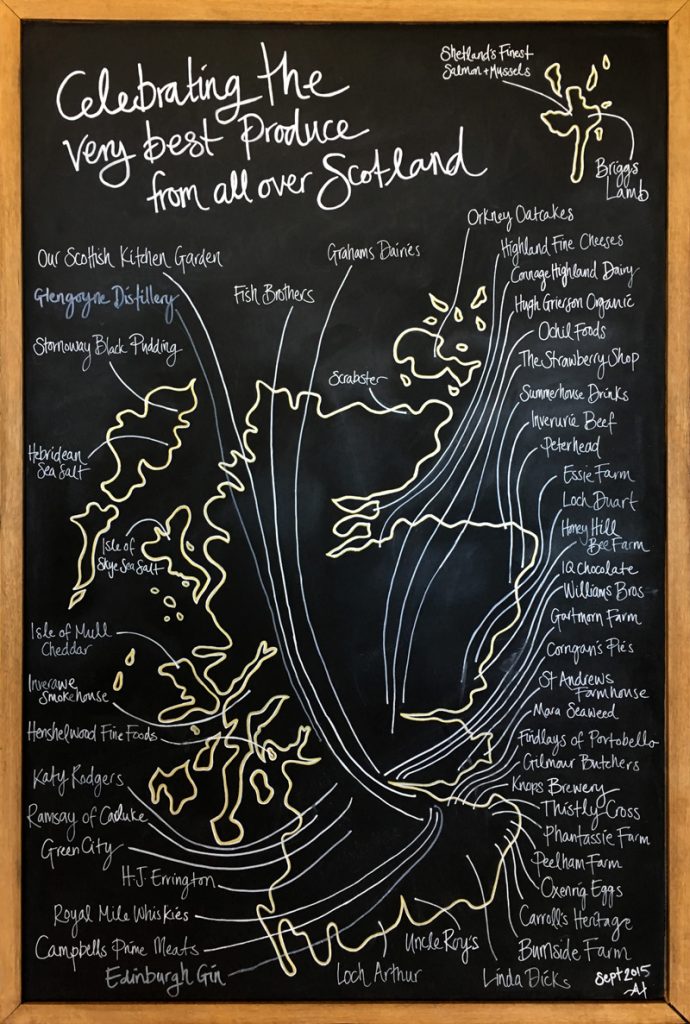 Celebrating the
very best Produce
from all over Scotland
Shetland's Finest
Salmon + Mussels
Briggs
Lamb
Our Scottish Kitchen Garden
Glengoyne Distillery
Fish Brothers
Grahams Dairies
Orkney Oatcakes
Stornoway Black Pudding
Scrabster
Hebridean
Sea Salt
Isle of
Skye Sea Salt
Isle of Mull
Cheddar
Inverawe
Smokehouse
Henshelwood Fine Foods
Katy Rodgers
Ramsay of Carluke
Green City
H.J. Errington
Royal Mile Whiskies
Campbells Prime Meats
Edinburgh Gin
Highland Fine Cheeses
Connage Highland Dairy
Hugh Grierson Organic
Ochil Foods
The Strawberry Shop
Summerhouse Drinks
Inverurie Beef
Peterhead
Essie Farm
Loch Duart
Honey Hill
Bee Farm
IQ Chocolate
Williams Bros
Gartmorn Farm
Corrigan's Pies
St Andrews
Farmhouse
Mara Seaweed
Findlays of Portobello
Gilmour Butchers
Knops Brewery
Thistly Cross
Phantassie Farm
Peelham Farm
Oxenrig Eggs
Carroll's Heritage
Burnside Farm
Linda Dicks
Uncle Roy's
Loch Arthur
Sept 2015